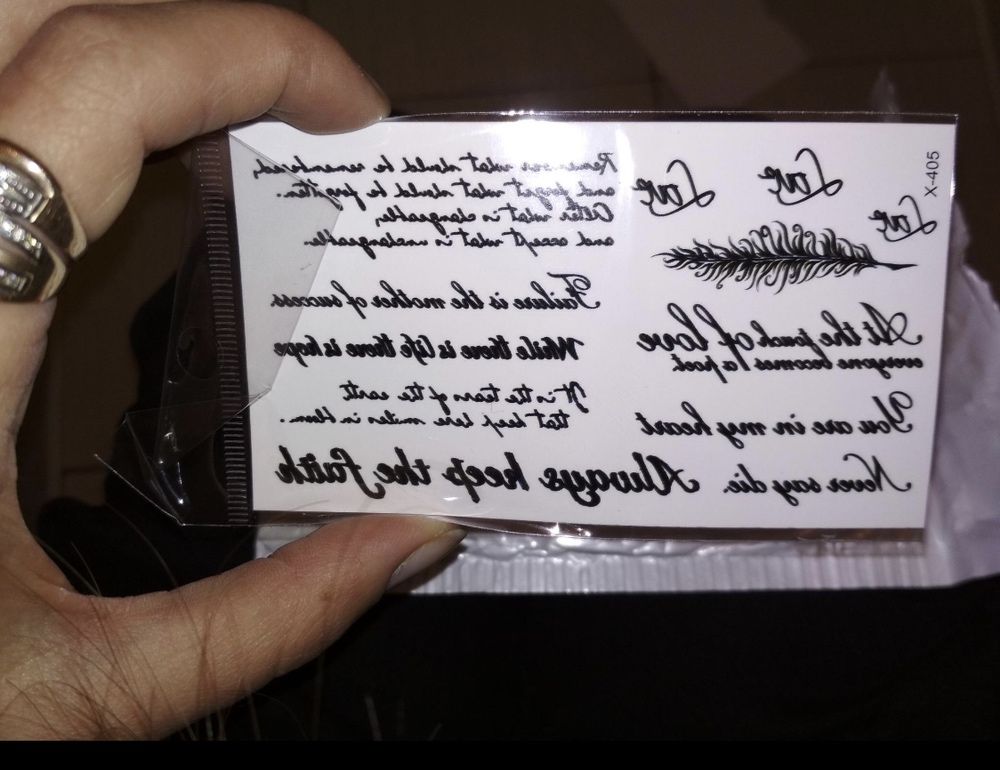 X-405
Love
Love
Love
At the touch of love
everyone becomes a poet
You are in my heart
Never say die.
Remember what should be remembered,
and forget what should be forgotten.
Alter what is changeable,
and accept what is unchangeable.
Failure is the mother of success.
While there is life there is hope
It is the tears of the earth
that keep here smiles in bloom.
Always keep the faith